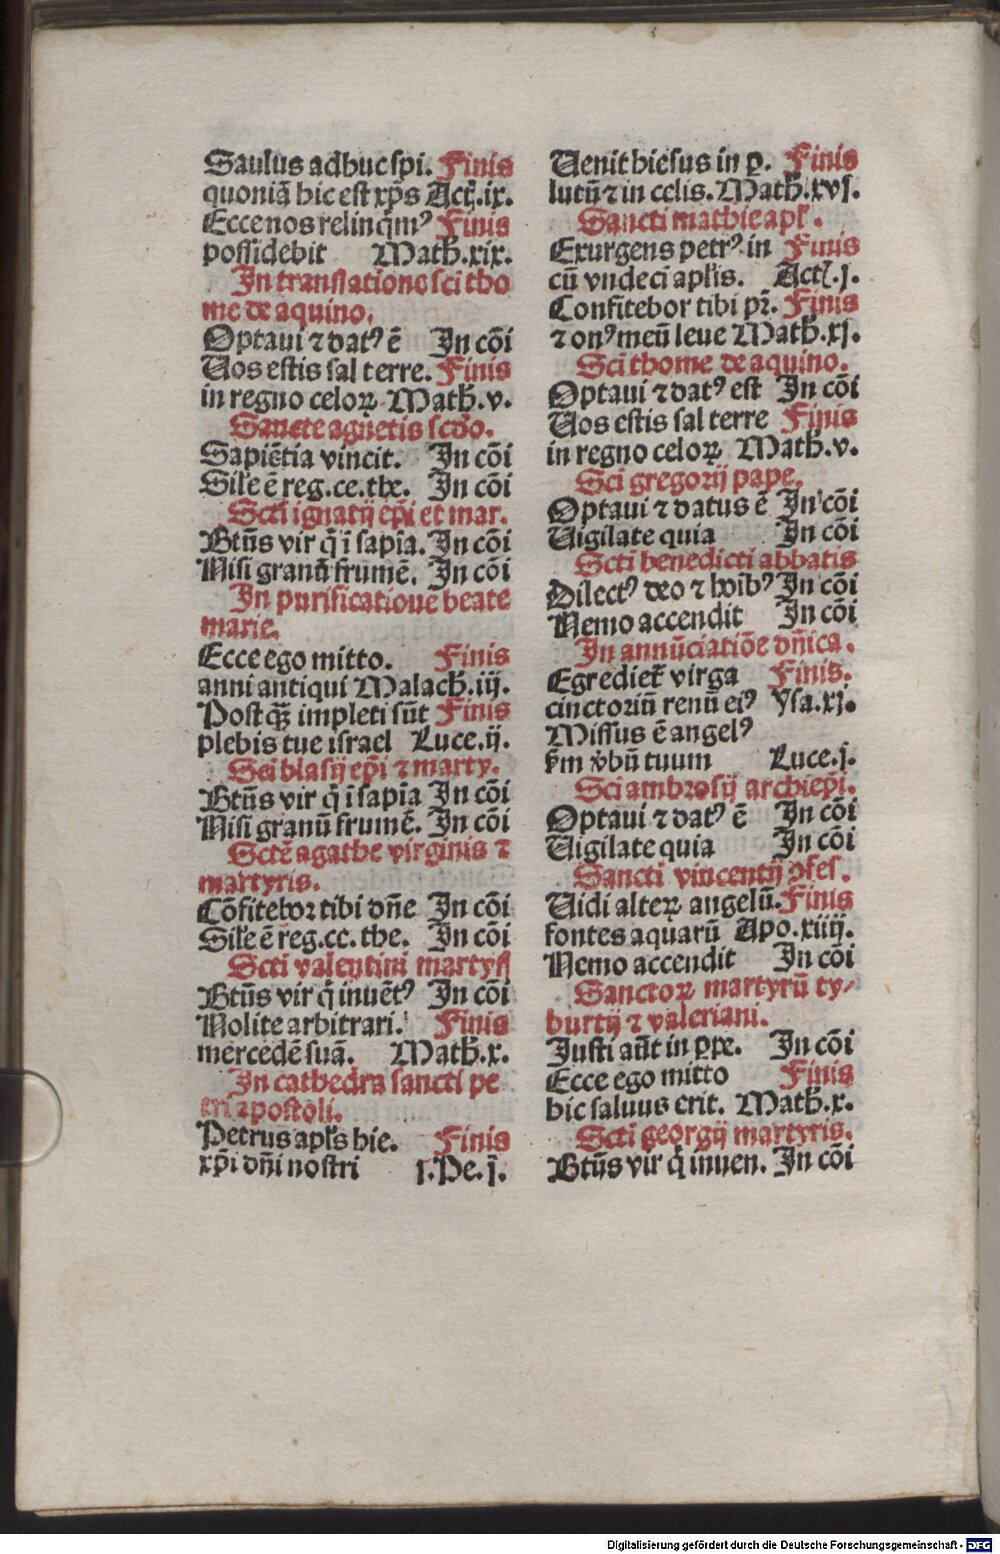 Saulus adhuc spi. Finis
quoniā hic est xp̄s Act̄.ix.
Ecce nos relinq̄mꝰ Finis
possidebit Math̄.xix.
In translatione sc̄i tho
me de aquino.
Optaui ⁊ datꝰ ē In cōi
Uos estis sal terre. Finis
in regno celoꝝ. Math̄.v.
Sancte agnetis scd̄o.
Sapiētia vincit. In cōi
Sil'e ē reg.ce.the. In cōi
Scti ignatij ep̄i et mar.
Btūs vir q̄ ī sapīa. In cōi
Nisi granū frumē. In cōi
In purificatione beate
marie.
Ecce ego mitto. Finis
anni antiqui Malach̄.iij.
Postq̄ꝫ impleti sūt Finis
plebis tue israel Luce.ij.
Sc̄i blasij ep̄i ⁊ marty.
Btūs vir q̄ ī sapīa In cōi
Nisi granū frumē. In cōi
Sctē agathe virginis ⁊
martyris.
Cōfitebor tibi dn̄e In cōi
Sil'e ē reg.ce. the. In cōi
Scti valentini martyꝭ
Btūs vir q̄ inuētꝰ In cōi
Nolite arbitrari. Finis
mercedē suā. Math̄.x.
In cathedra sancti pe
tri apostoli.
Petrus apl's hie. Finis
xp̄i dn̄i nostri 1.Pe.j.
Uenit hiesus in ꝑ. Finis
lutū ⁊ in celis. Math̄.xvj.
Sancti mathie apl'.
Exurgens petrꝰ in Finis
cū vndeci apl'is. Act̄.j.
Confitebor tibi pr̄. Finis
⁊ onꝰ meū leue Math̄.xj.
Sc̄i thome de aquino.
Optaui ⁊ datꝰ est In cōi
Uos estis sal terre Finis
in regno celoꝝ Math̄.v.
Sc̄i gregorij pape.
Optaui ⁊ datus ē In cōi
Uigilate quia In cōi
Scti benedicti abbatis
Dilectꝰ deo ⁊ hoībꝰ In cōi
Nemo accendit In cōi
In annūciatiōe dn̄ica.
Egrediet̄ virga Finis.
cinctoriū renū eiꝰ Ysa.xj.
Missus ē angelꝰ
s̄m v̄bū tuum Luce.j.
Sc̄i ambrosij archiep̄i.
Optaui ⁊ datꝰ ē In cōi
Uigilate quia In cōi
Sancti vincentij ꝯfes.
Uidi alteꝝ angelū. Finis
fontes aquarū Apo.xiiij.
Nemo accendit In cōi
Sanctoꝝ martyrū ty⸗
burtij ⁊ valeriani.
Justi aūt in ꝑpe. In cōi
Ecce ego mitto Finis
hic saluus erit. Math̄.x.
Scti georgij martyris.
Btūs vir q̄ inuen. In cōi
Digitalisierung gefördert durch die Deutsche Forschungsgemeinschaft - DFG